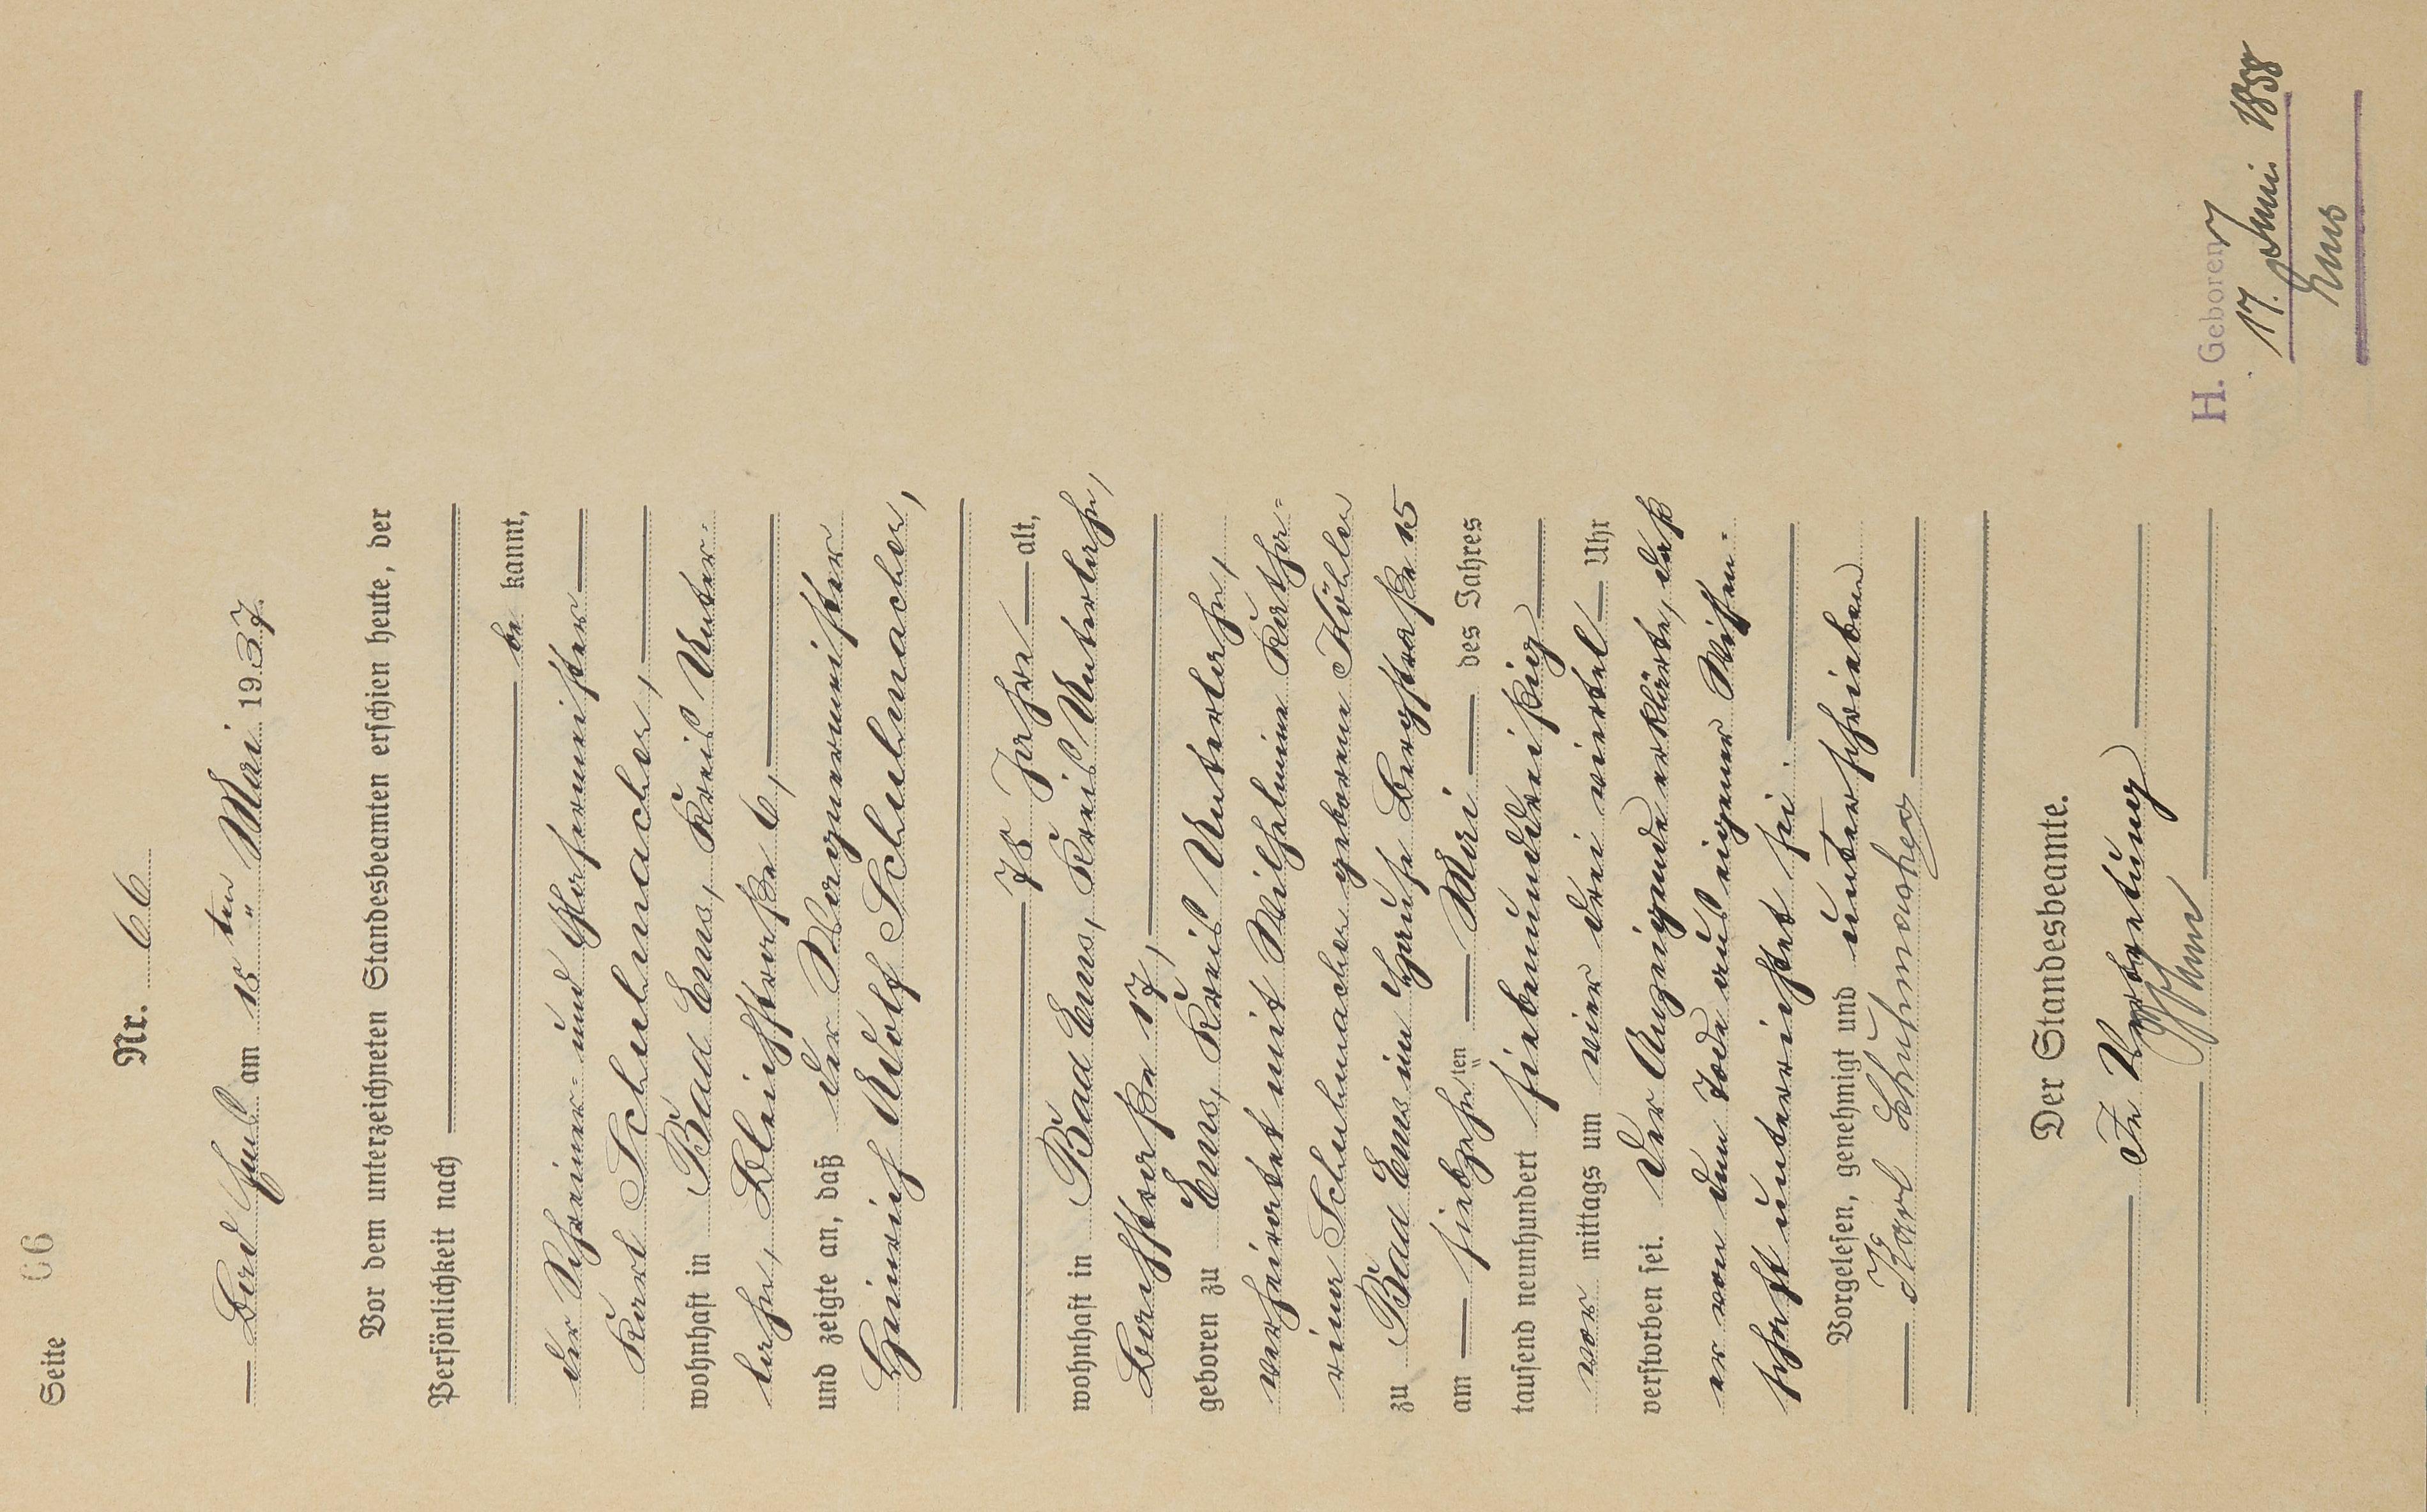 Seite 66
Nr. 66
Bad Ems am 18 ten Mai 1937.
Vor dem unterzeichneten Standesbeamten erschien heute, der
Persönlichkeit nach
be kannt,
der Schreiner- und Glasermeister
Karl Schuhmacher,
wohnhaft in Bad Ems, Kreis Unter-
lahn, Bleichstraße 6,
und zeigte an, daß der Wagnermeister
Heinrich Adolf Schuhmacher,
78 Jahre alt,
wohnhaft in Bad Ems, Kreis Unterlahn,
Bachstraße 17,
geboren zu Ems, Kreis Unterlahn,
verheiratet mit Wilhelmine Katha-
rina Schuhmacher geborene Köhler
zu Bad Ems im Hause Bergstraße 15
am siebzehn ten Mai des Jahres
tausend neunhundert siebenunddreißig
vor mittags um vier drei viertel Uhr
verstorben sei. Der Anzeigende erklärte, daß
er von dem Tode aus eigener Wissen-
schaft unterrichtet sei.
Vorgelesen, genehmigt und unterschrieben
Karl Schuhmacher
Der Standesbeamte.
In Vertretung
H. Geboren
17. Juni 1858
Ems